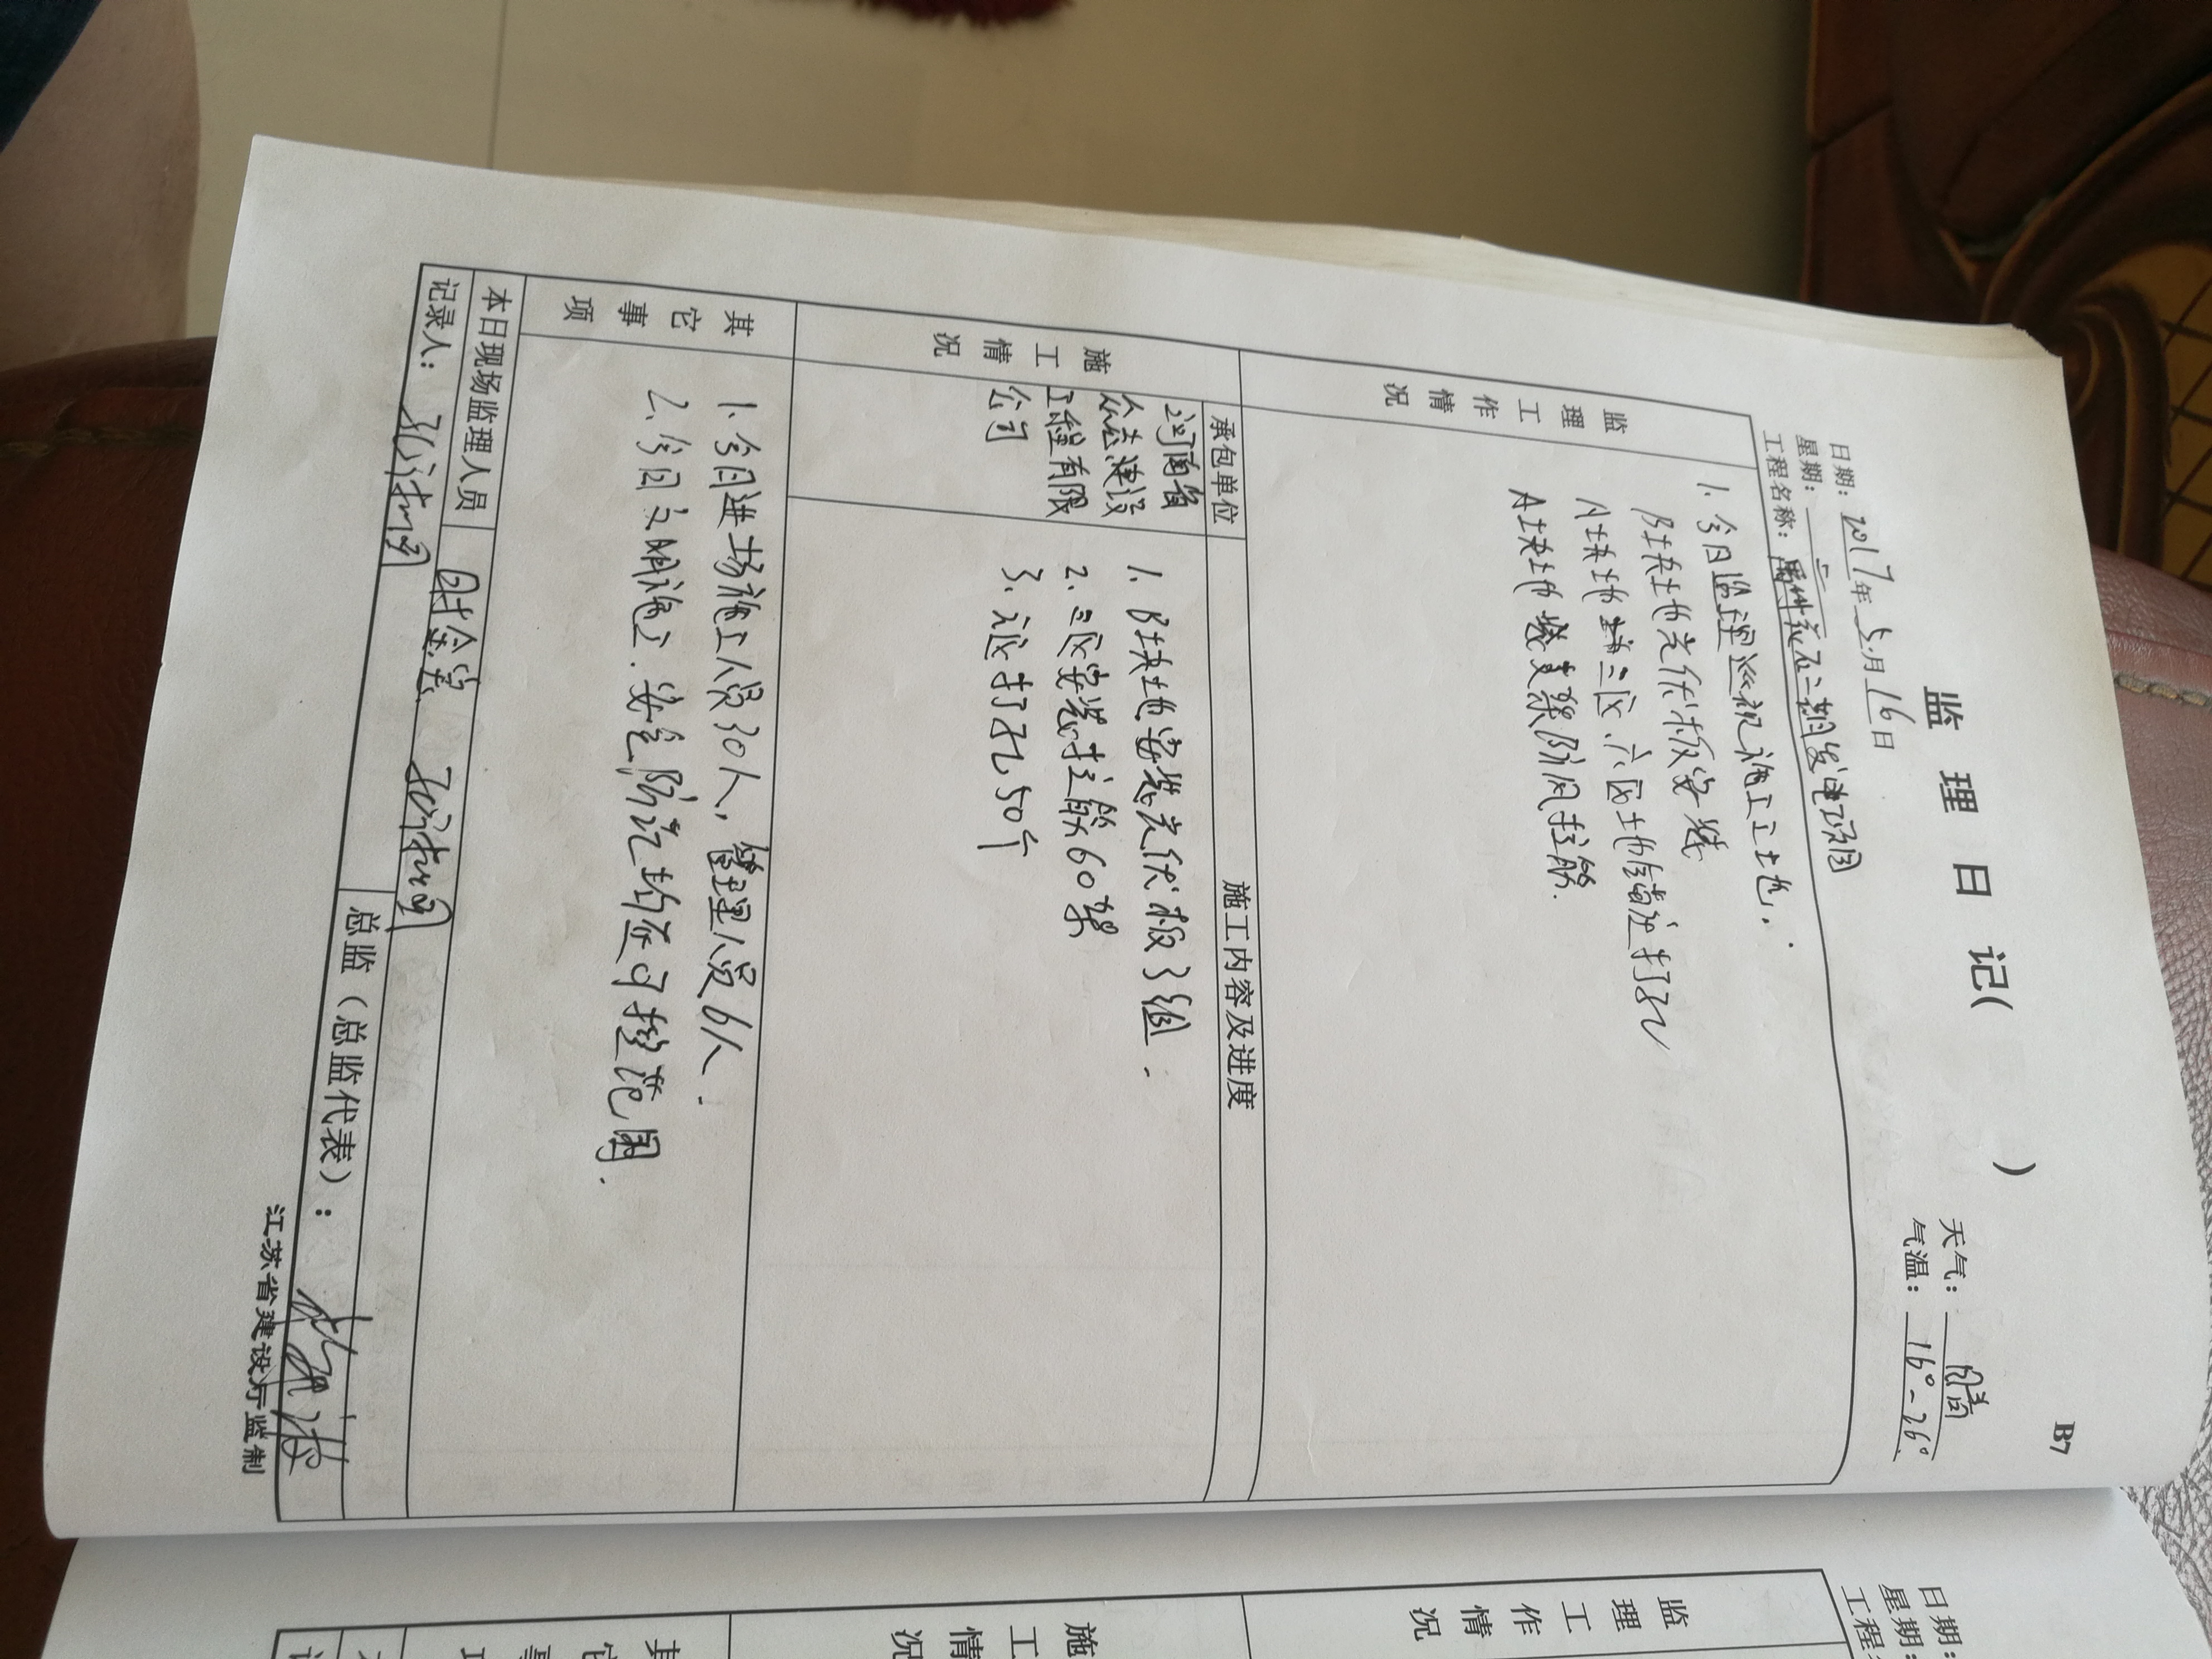 B7
监理日记( )
日期：2017年5月16日
天气：晴
星期：二
气温：16°-26°
工程名称：禹州 二期发电项目
监理工作情况
1. 今日监理巡视施工工地.
B块地光伏板安装
A块地 三区.六区 打孔
A块地 支架防风拉筋.
施工情况
承包单位
施工内容及进度
河南省
众志建设
工程有限
公司
1. B块地安装光伏板3组.
2. 三区安装拉筋60架
3. 六区打孔50个
其它事项
1. 今日进场施工人员30人，管理人员6人.
2. 今日文明施工.安全防汛均在可控范围.
本日现场监理人员
记录人：
总监（总监代表）：
江苏省建设厅监制
日期：
星期：
工程
监理工作情况
施工情况
其它